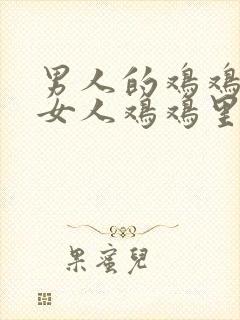 男人的鸡鸡
女人鸡鸡里
果蜜兒